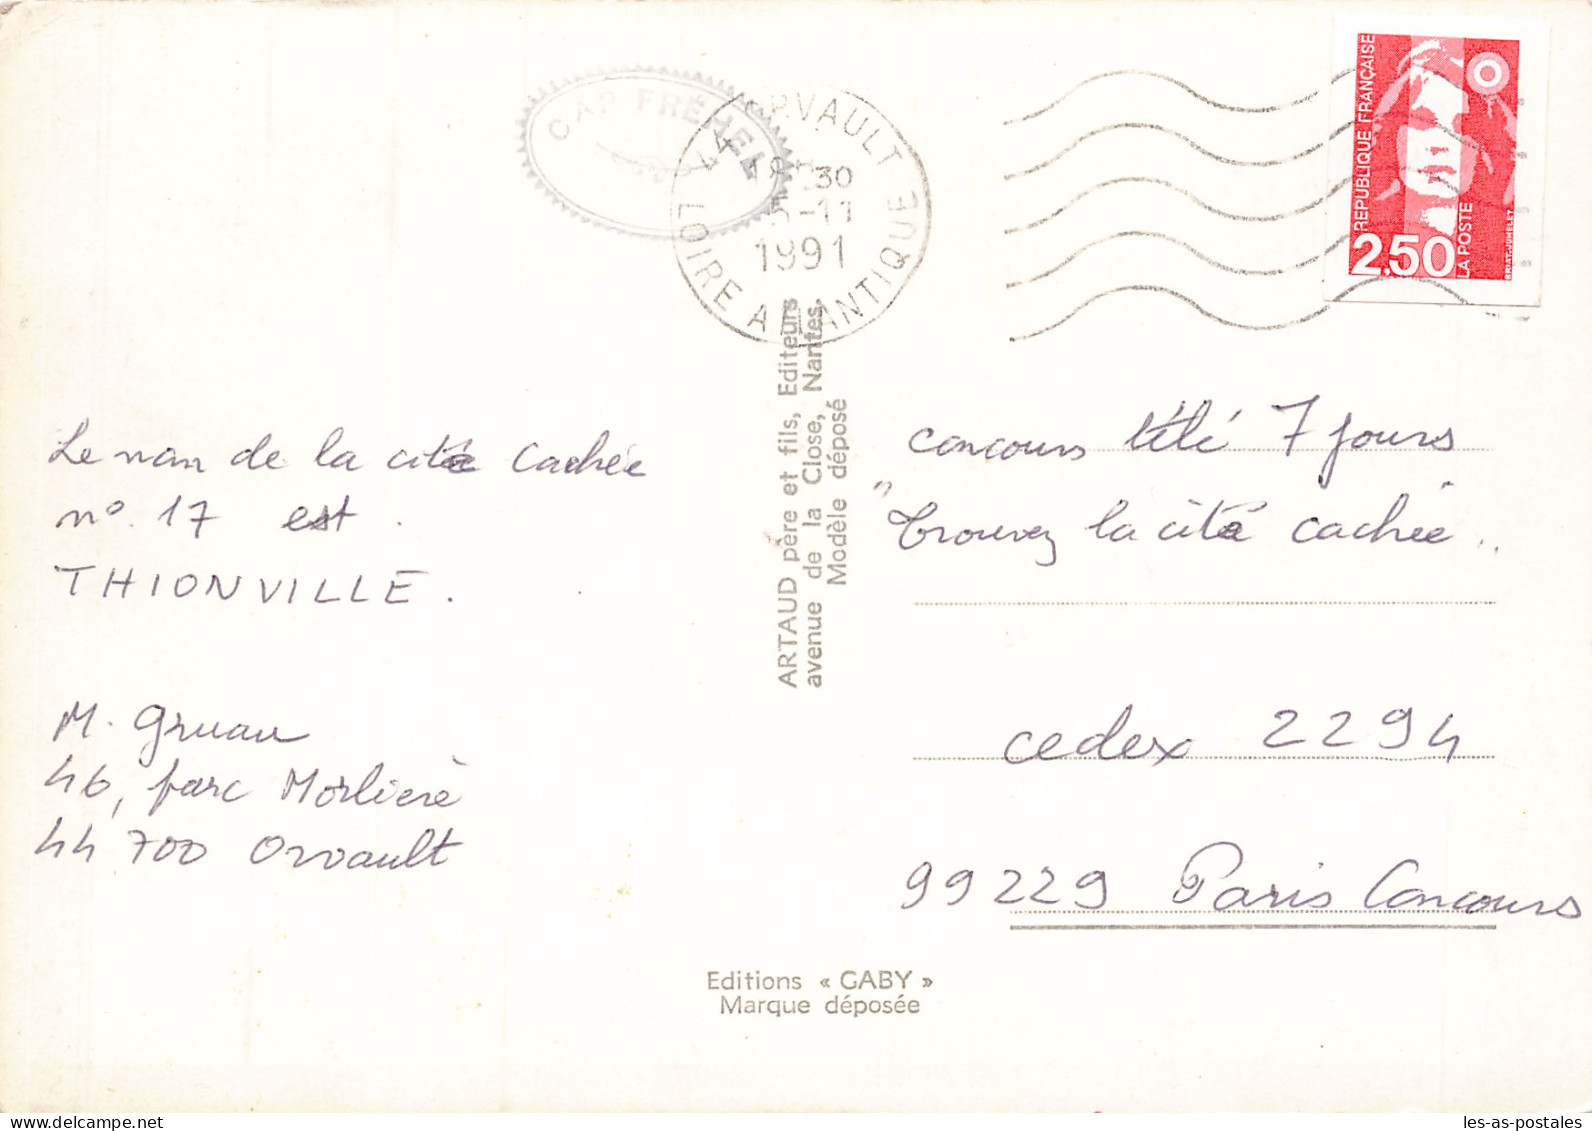 CAP FRÉHEL
44 ORVAULT
30
-11
1991
LOIRE ATLANTIQUE
RÉPUBLIQUE FRANÇAISE
2,50
LA POSTE
BRIAT-JUMELET
Le nom de la cité cachée
n° 17 est
THIONVILLE.
M. Gruau
46, parc Morlière
44 700 Orvault
ARTAUD père et fils, Editeurs
avenue de la Close, Nantes.
Modèle déposé
concours télé 7 jours
"Trouvez la cité cachée"
cedex 2294
99229 Paris Concours
Editions « GABY »
Marque déposée
les-as-postales